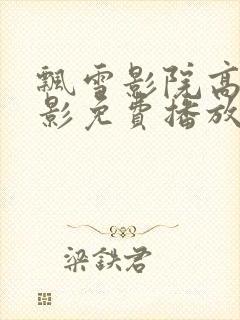 飘雪影院高
影免費播放
梁鉄君